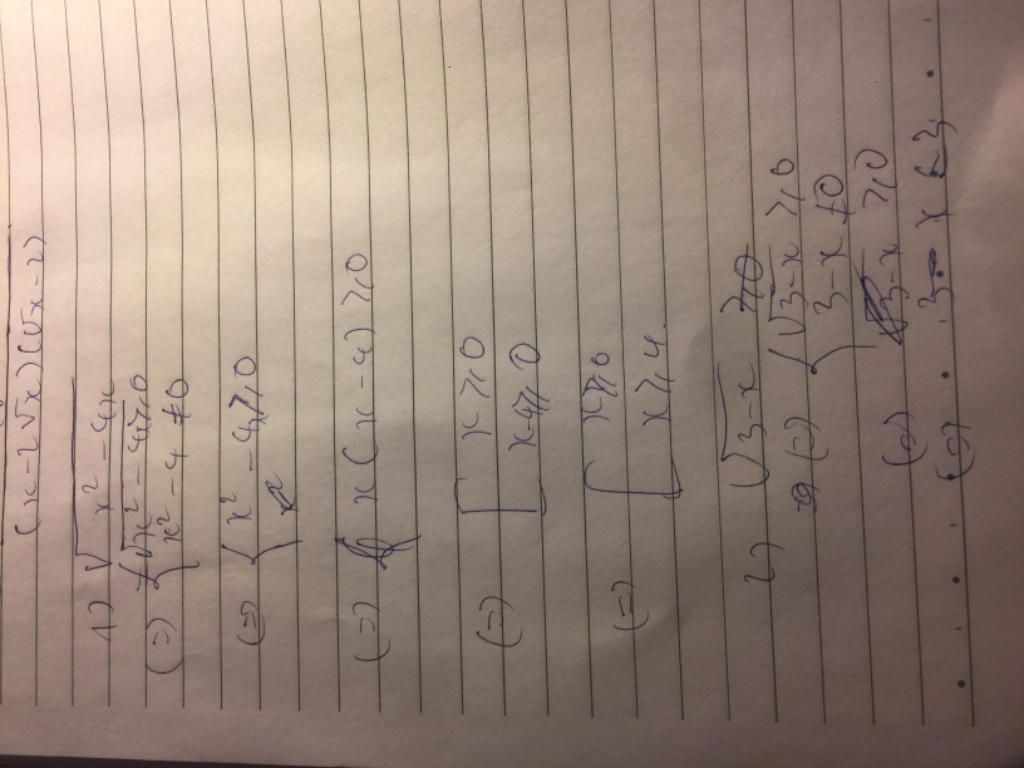 (x-2√x)(√x-2)
1) √x²-4x
(=) { √x²-4x≥0
x²-4 ≠0
(=) { x²-4x≥0
(=) x(x-4)≥0
(=) [ x≥0
x-4≥0
(=) [ x≥0
x≥4
2) √3-x ≥0
(=) { √3-x ≥0
3-x ≠0
(=) 3-x ≥0
(=) x ≤3